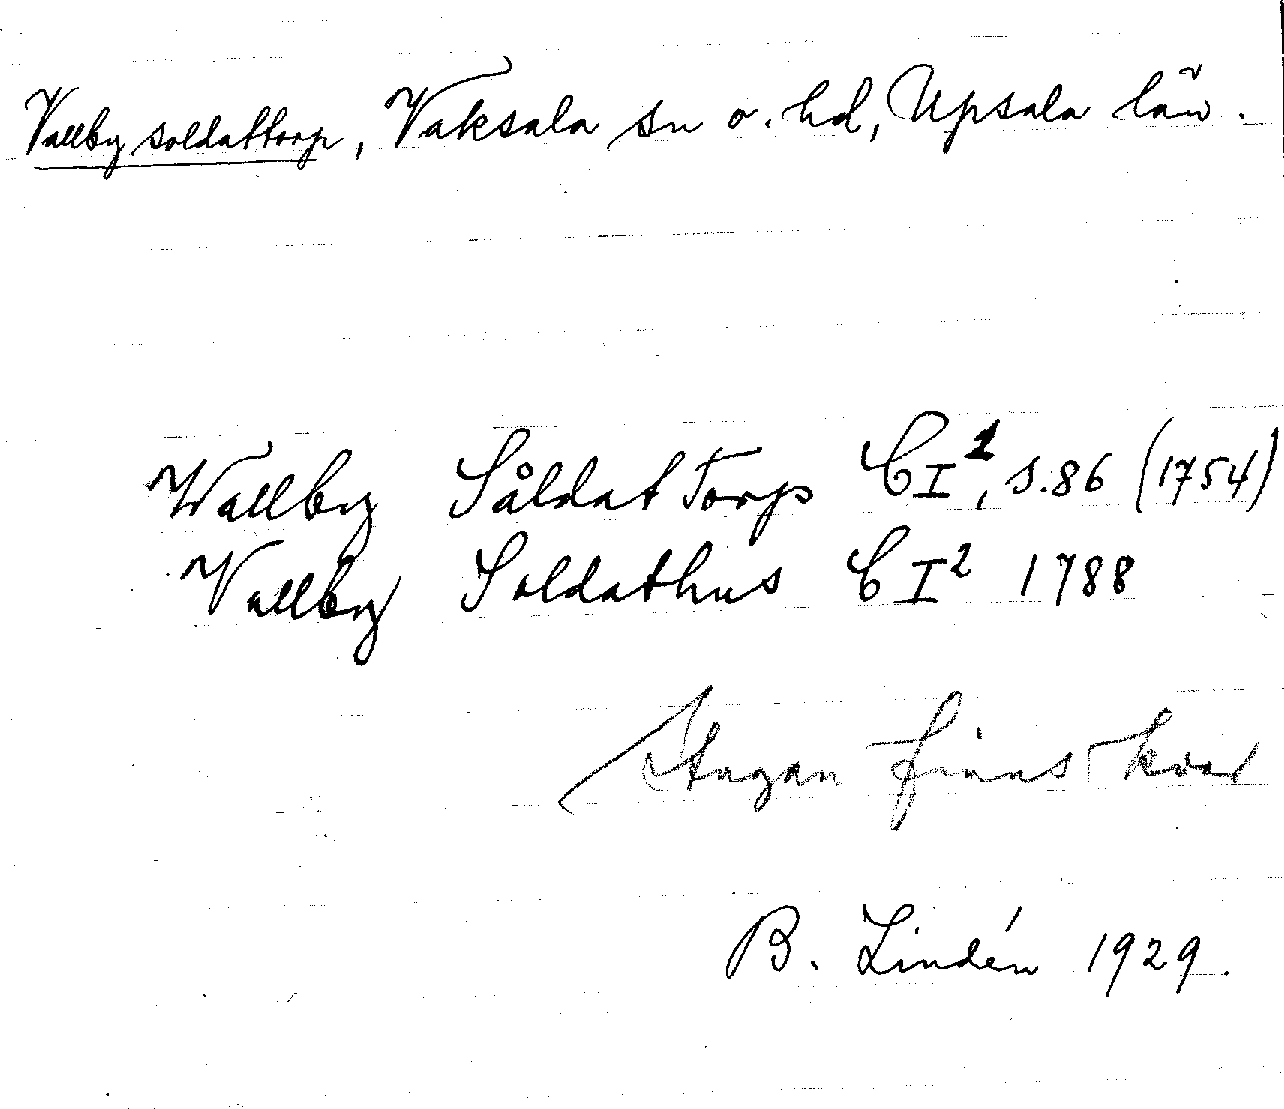 Vallby soldattorp, Vaksala sn o. hd, Upsala län.
Wallby Såldat Torp CI¹, s.86 (1754)
Vallby Soldathus CI² 1788
Stugan finns kvar
B. Lindén 1929.